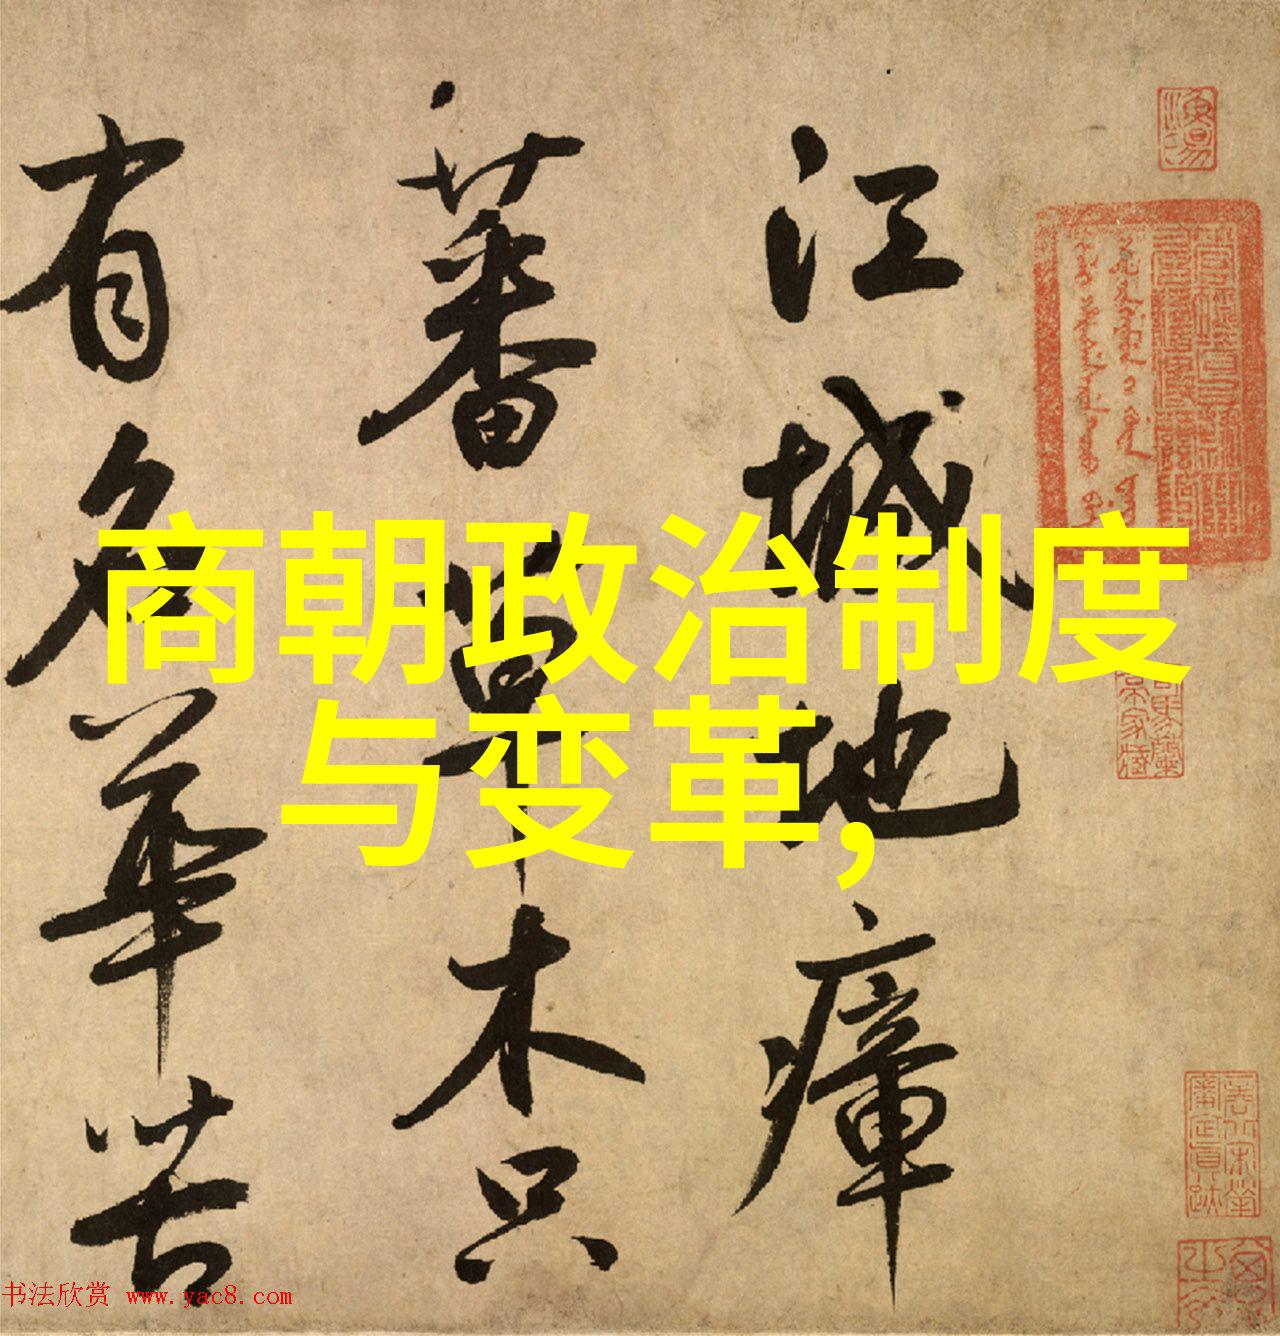 商朝政治制度
与变革,
江城地瘴
蕃草木只
有名華苦
书法欣赏 www.yac8.com